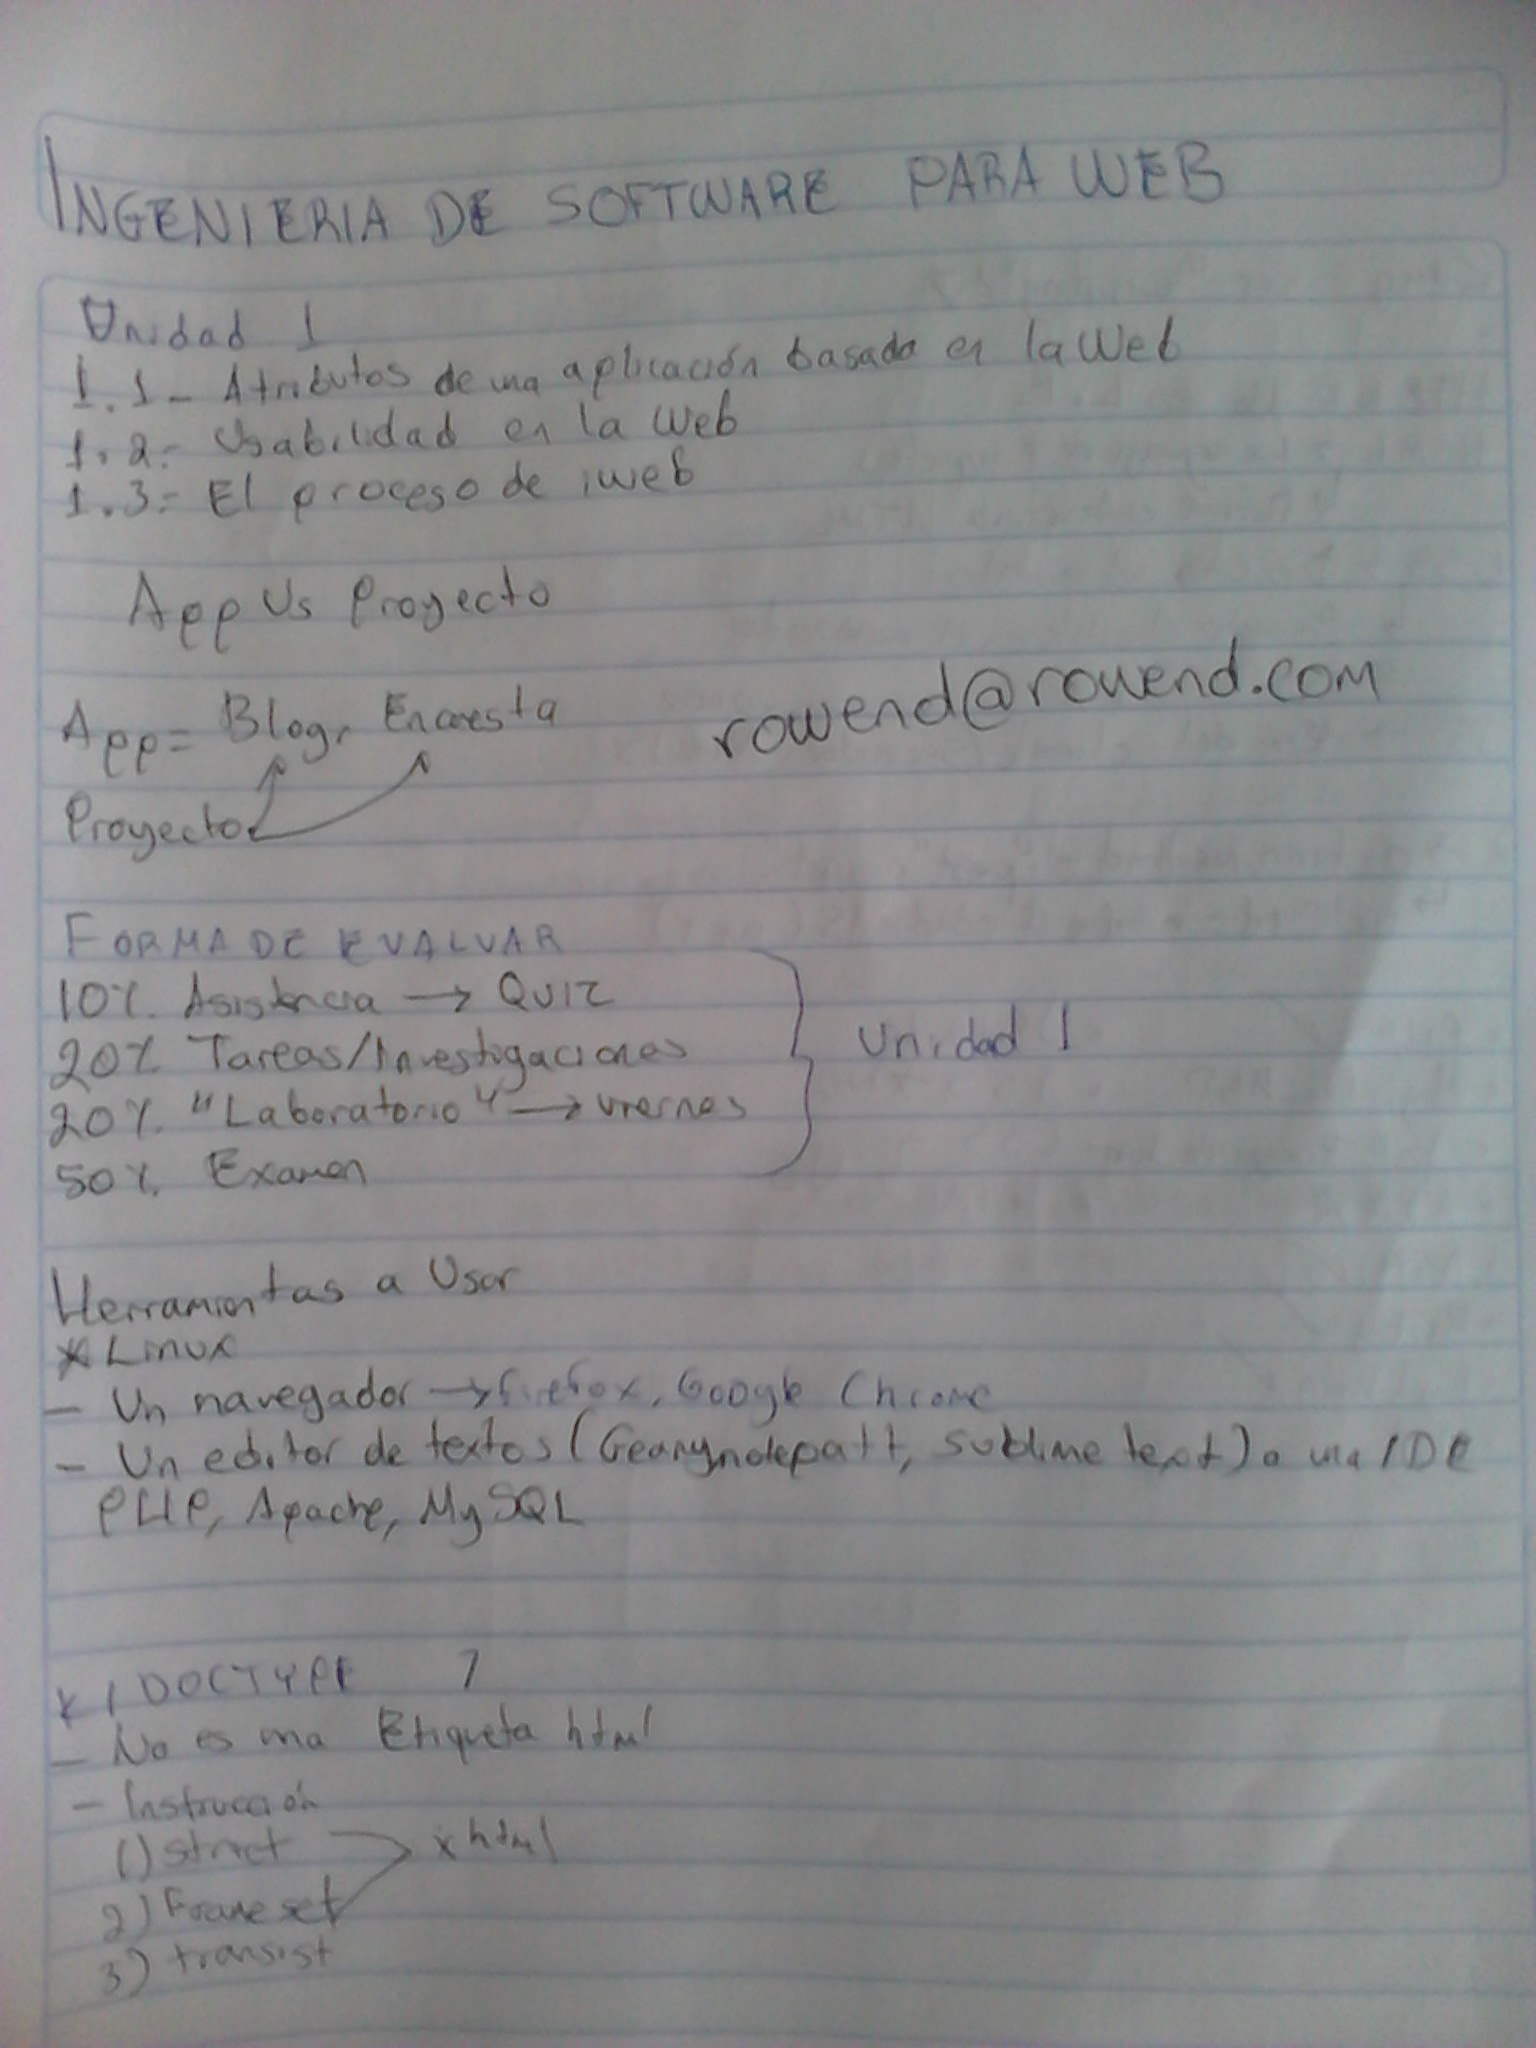 INGENIERIA DE SOFTWARE PARA WEB
Unidad 1
1.1- Atributos de una aplicación basada en la Web
1.2- Usabilidad en la Web
1.3- El proceso de iweb
App Vs Proyecto
App= Blog, Encuesta
rowend@rowend.com
Proyecto
FORMA DE EVALUAR
10% Asistencia → QUIZ
20% Tareas/Investigaciones
Unidad 1
20% "Laboratorio" → viernes
50% Examen
Herramientas a Usar
* Linux
- Un navegador → firefox, Google Chrome
- Un editor de textos (Geany, sublime text) o una IDE
PHP, Apache, MySQL
DOCTYPE
- No es una Etiqueta html
- Instrucción
1) strict
xhtml
2) Frameset
3) transist